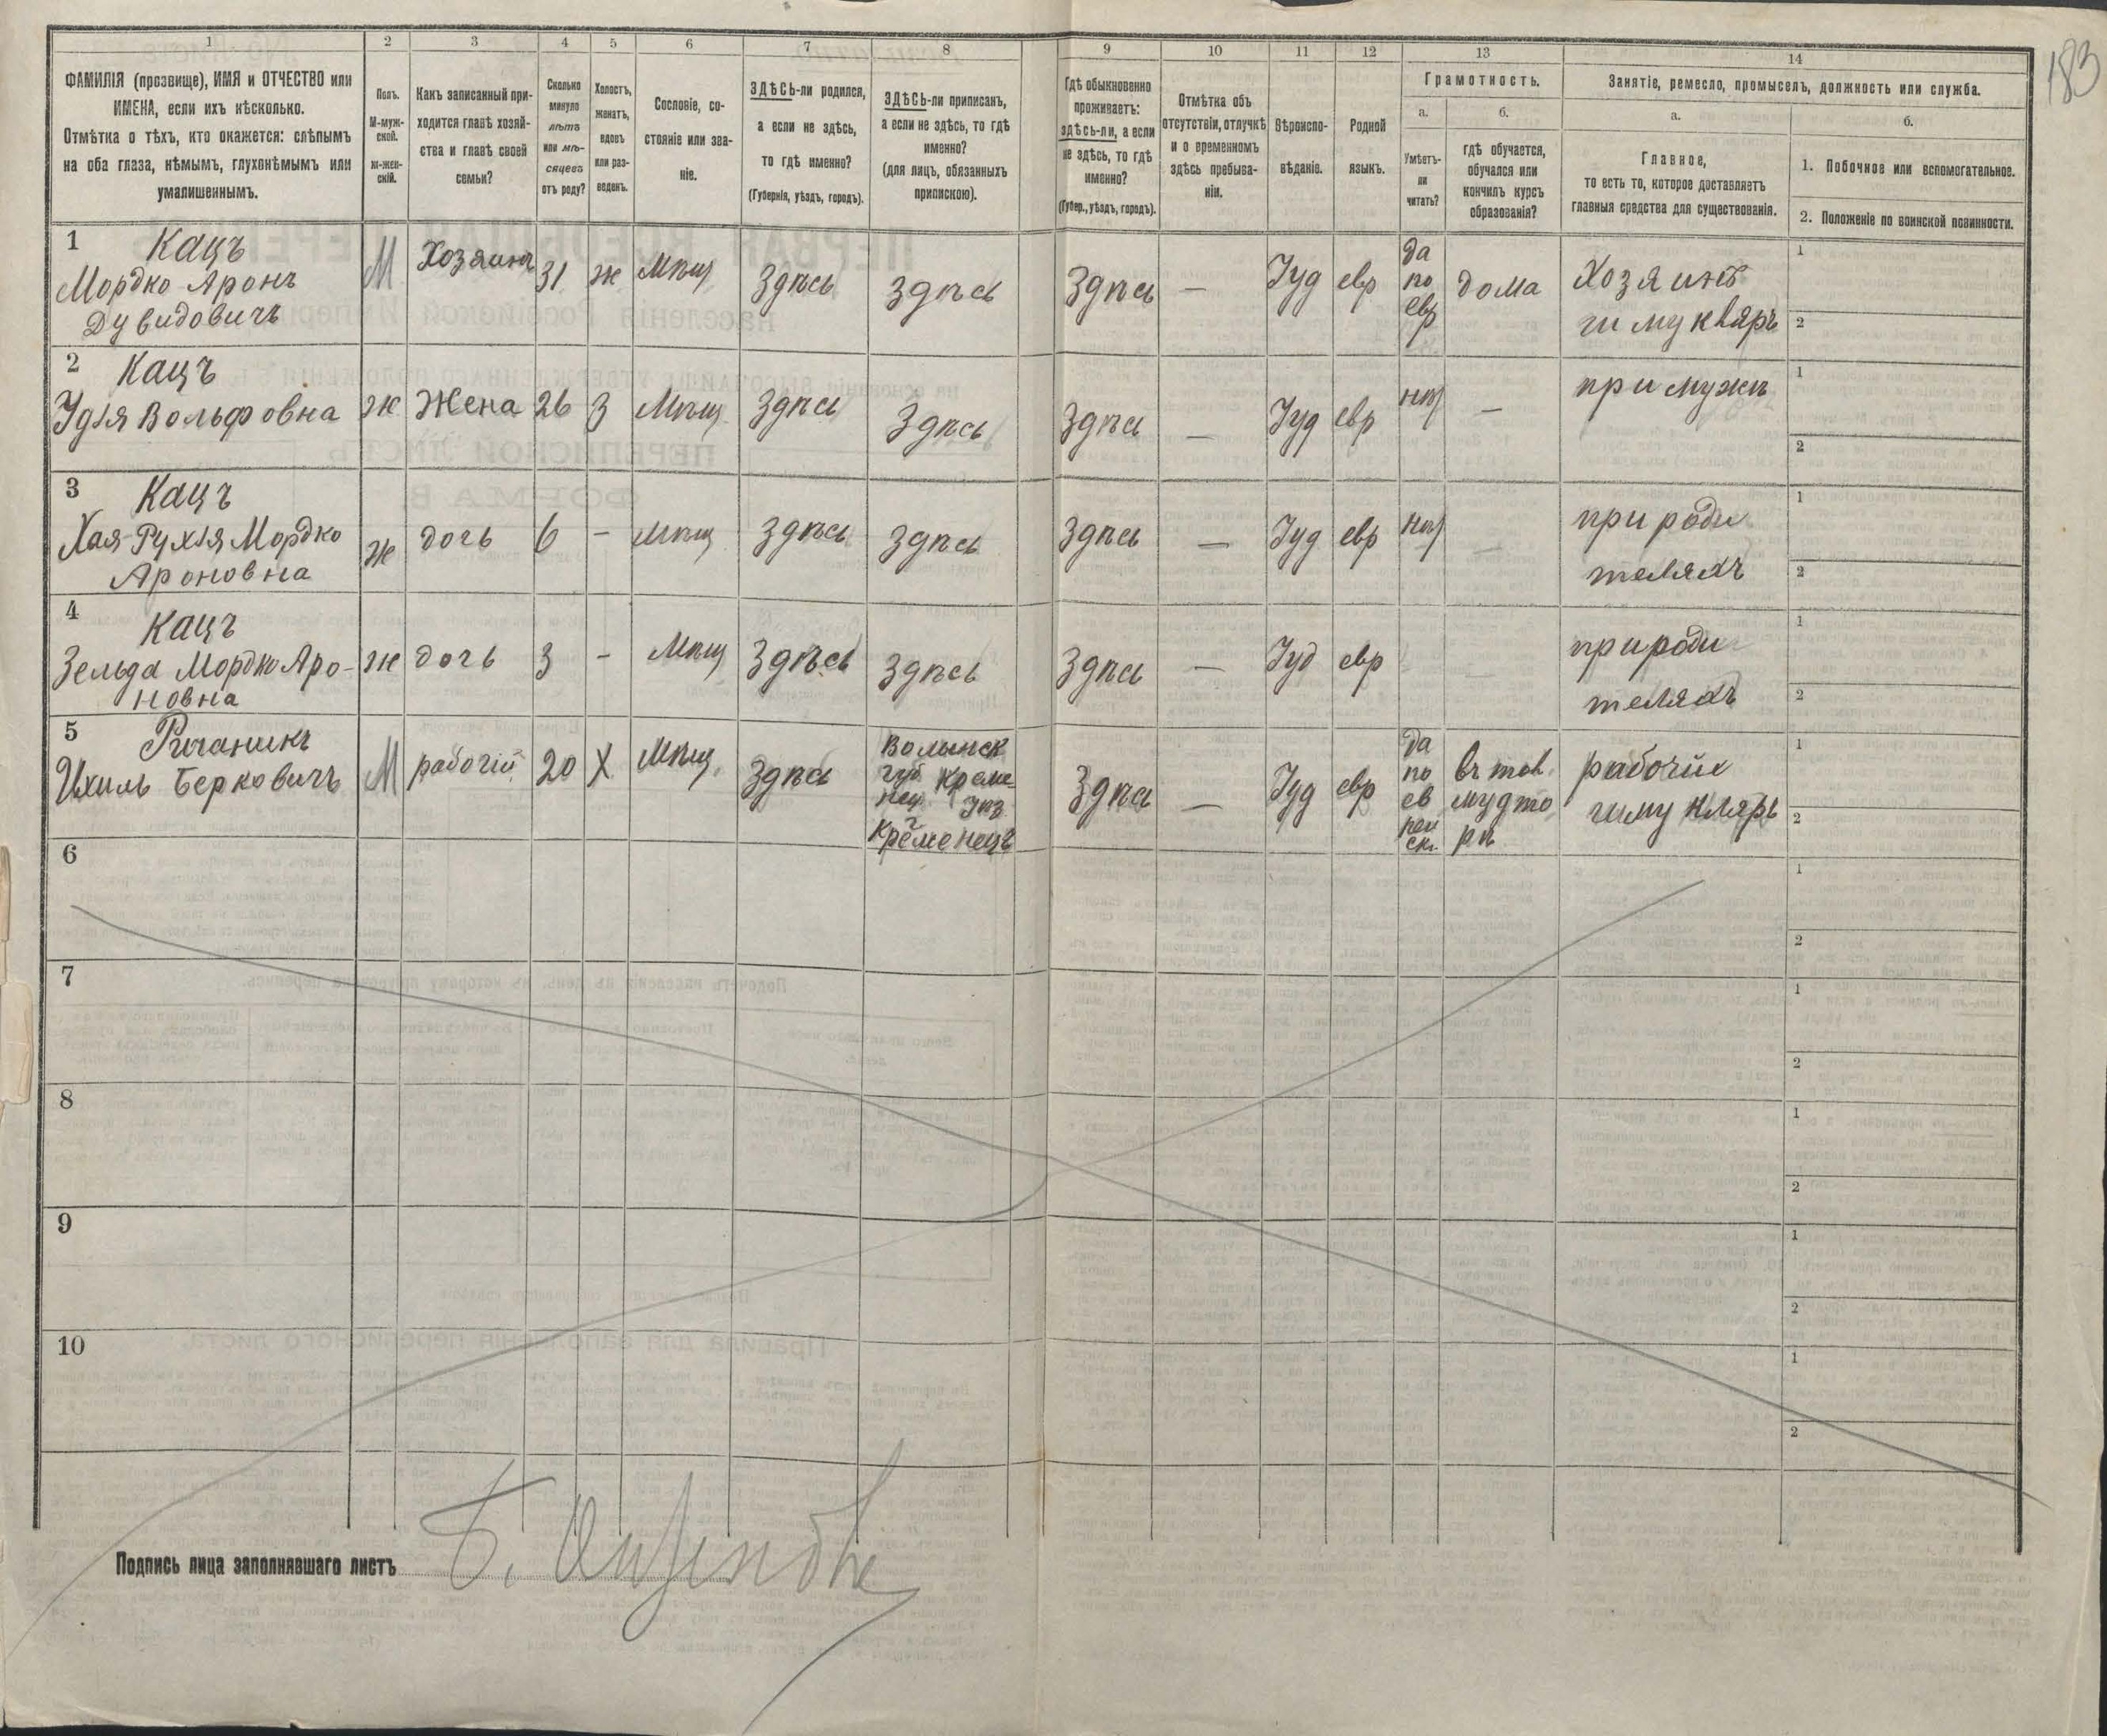 183
1 2 3 4 5 6 7 8 9 10 11 12 13 14
ФАМИЛІЯ (прозвище), ИМЯ и ОТЧЕСТВО или
ИМЕНА, если ихъ нѣсколько.
Отмѣтка о тѣхъ, кто окажется: слѣпымъ
на оба глаза, нѣмымъ, глухонѣмымъ или
умалишеннымъ.
Полъ.
М-муж-
ской.
Ж-жен-
скій.
Какъ записанный при-
ходится главѣ хозяй-
ства и главѣ своей
семьи?
Сколько
минуло
лѣтъ
или мѣ-
сяцевъ
отъ роду?
Холостъ,
женатъ,
вдовъ
или раз-
веденъ.
Сословіе, со-
стояніе или зва-
ніе.
ЗДѢСЬ-ли родился,
а если не здѣсь,
то гдѣ именно?
(Губернія, уѣздъ, городъ).
ЗДѢСЬ-ли приписанъ,
а если не здѣсь, то гдѣ
именно?
(для лицъ, обязанныхъ
припискою).
Гдѣ обыкновенно
проживаетъ:
здѣсь-ли, а если
не здѣсь, то гдѣ
именно?
(Губер., уѣздъ, городъ).
Отмѣтка объ
отсутствіи, отлучкѣ
и о временномъ
здѣсь пребыва-
ніи.
Вѣроиспо-
вѣданіе.
Родной
языкъ.
Грамотность.
а.
Умѣетъ-
ли
читать?
б.
гдѣ обучается,
обучался или
кончилъ курсъ
образованія?
Занятіе, ремесло, промыселъ, должность или служба.
а.
Главное,
то есть то, которое доставляетъ
главныя средства для существованія.
б.
1. Побочное или вспомогательное.
2. Положеніе по воинской повинности.
1
Кацъ
Мордко Аронъ
Дувидовичъ
М
Хозяинъ
31
ж
Мѣщ
Здѣсь
Здѣсь
Здѣсь
—
Іуд
евр
да
по
евр
дома
Хозяинъ
1
2
2
Кацъ
Вольфовна
ж
Жена
26
З
Мѣщ
Здѣсь
Здѣсь
Здѣсь
—
Іуд
евр
нѣт
—
при мужѣ
1
2
3
Кацъ
Хая-Рухля Мордко
Ароновна
ж
дочь
6
-
Мѣщ
Здѣсь
Здѣсь
Здѣсь
—
Іуд
евр
нѣт
—
при роди
теляхъ
1
2
4
Кацъ
Зельда Мордко Аро-
новна
ж
дочь
3
-
Мѣщ
Здѣсь
Здѣсь
Здѣсь
—
Іуд
евр
при роди
теляхъ
1
2
5
Ихиль Берковичъ
М
рабочій
20
Х
Мѣщ.
Здѣсь
Волынск
губ. Креме-
нец. уѣз.
г.
Кременецъ
Здѣсь
—
Іуд
евр
да
по
ев
рей
ск.
въ тал.
мудто
рѣ
рабочій
1
2
6
1
2
7
1
2
8
1
2
9
1
2
10
1
2
Подпись лица заполнявшаго листъ